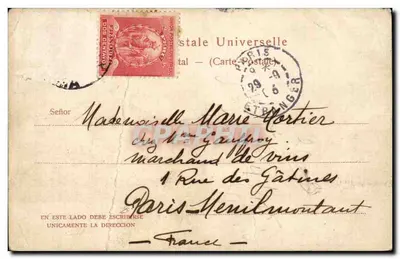 stale Universelle
tal - (Carte Postale)
PARIS
29
ETRANGER
Señor
Mademoiselle Marie Mortier
chez Mme
marchand de vins
1 Rue des Gâtines
Paris-Menilmontant
France
EN ESTE LADO DEBE ESCRIBIRSE
UNICAMENTE LA DIRECCION